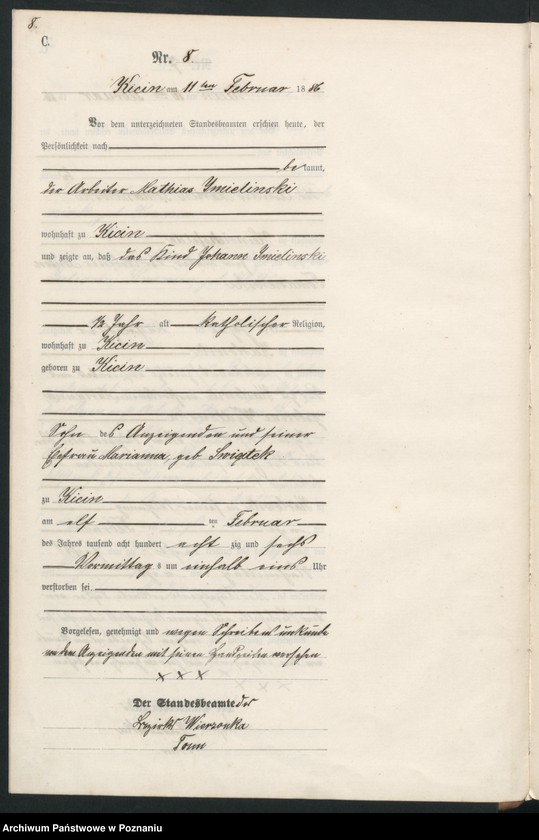 8.
C.
Nr. 8.
Kicin am 11ten Februar 1886
Vor dem unterzeichneten Standesbeamten erschien heute, der
Persönlichkeit nach
be kannt,
der Arbeiter Mathias Imielinski
wohnhaft zu Kicin
und zeigte an, daß das Kind Johann Imielinski
1/2 Jahr alt katholischer Religion,
wohnhaft zu Kicin
geboren zu Kicin
Sohn des Anzeigenden und seiner
Ehefrau Marianna, geb Swiątek
zu Kicin
am elf ten Februar
des Jahres tausend acht hundert acht zig und sechs
Vormittag s um einhalb eins Uhr
verstorben sei.
Vorgelesen, genehmigt und wegen Schreibens unkunde
von dem Anzeigenden mit seinen Handzeichen versehen
x x x
Der Standesbeamte des
Bezirks Wierzonka
Archiwum Państwowe w Poznaniu